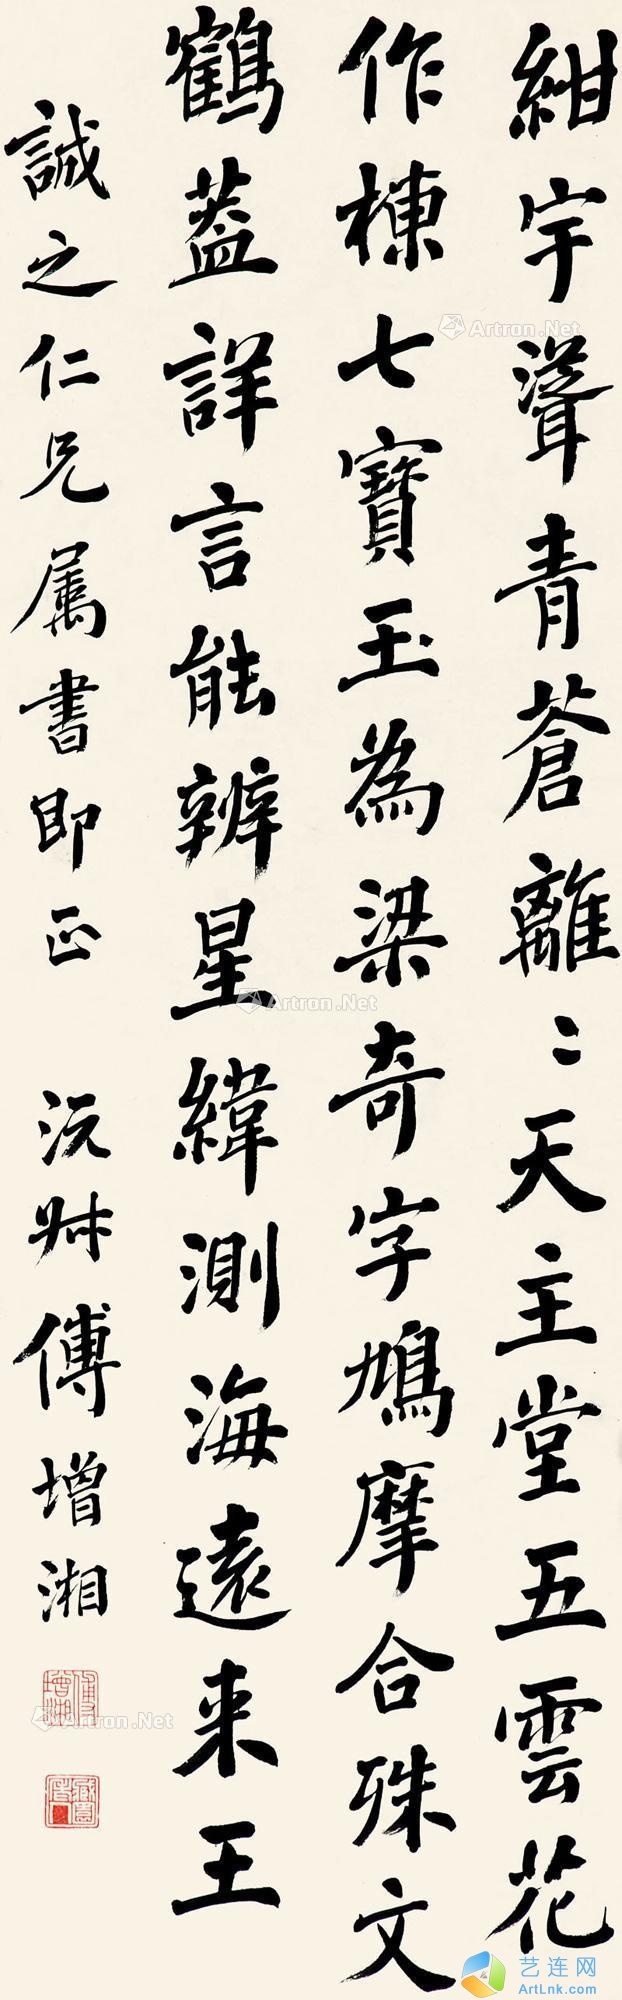 紺宇聳青蒼離〻天主堂五雲花
作棟七寶玉為梁奇字鳩摩合殊文
鶴蓋詳言能辨星緯測海遠来王
誠之仁兄属書即正 沅叔傅增湘
傅增湘
Artron.Net
Artron.Net
Artron.Net
艺连网
ArtLnk.com